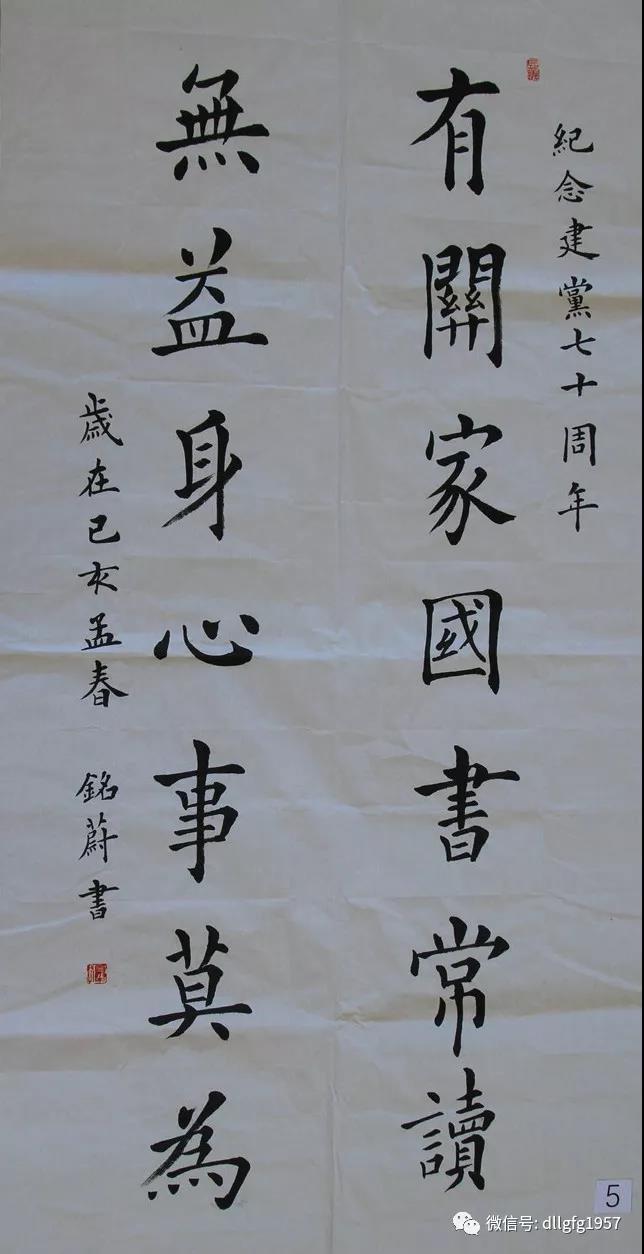 紀念建黨七十周年
有關家國書常讀
無益身心事莫為
歲在己亥孟春 銘蔚書
5
微信号: dllgfg1957